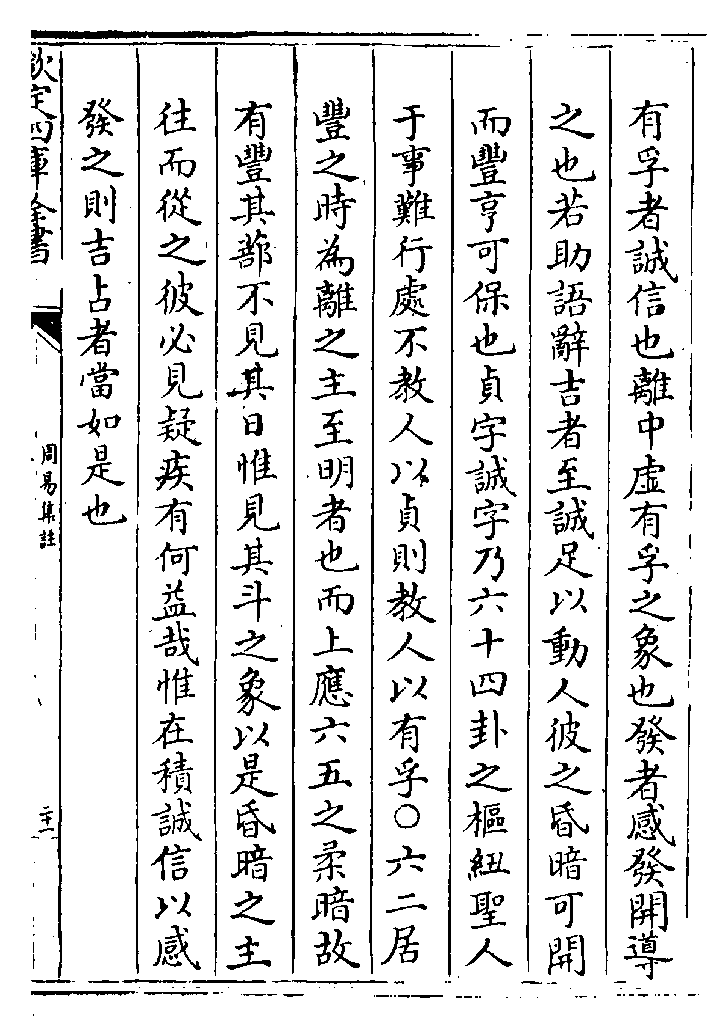 有孚者誠信也離中虛有孚之象也發者感發開導
之也若助語辭吉者至誠足以動人彼之昏暗可開
而豐亨可保也貞字誠字乃六十四卦之樞紐聖人
于事難行處不教人以貞則教人以有孚○六二居
豐之時為離之主至明者也而上應六五之柔暗故
有豐其蔀不見其日惟見其斗之象以是昏暗之主
往而從之彼必見疑疾有何益哉惟在積誠信以感
發之則吉占者當如是也
欽定四庫全書
周易集註